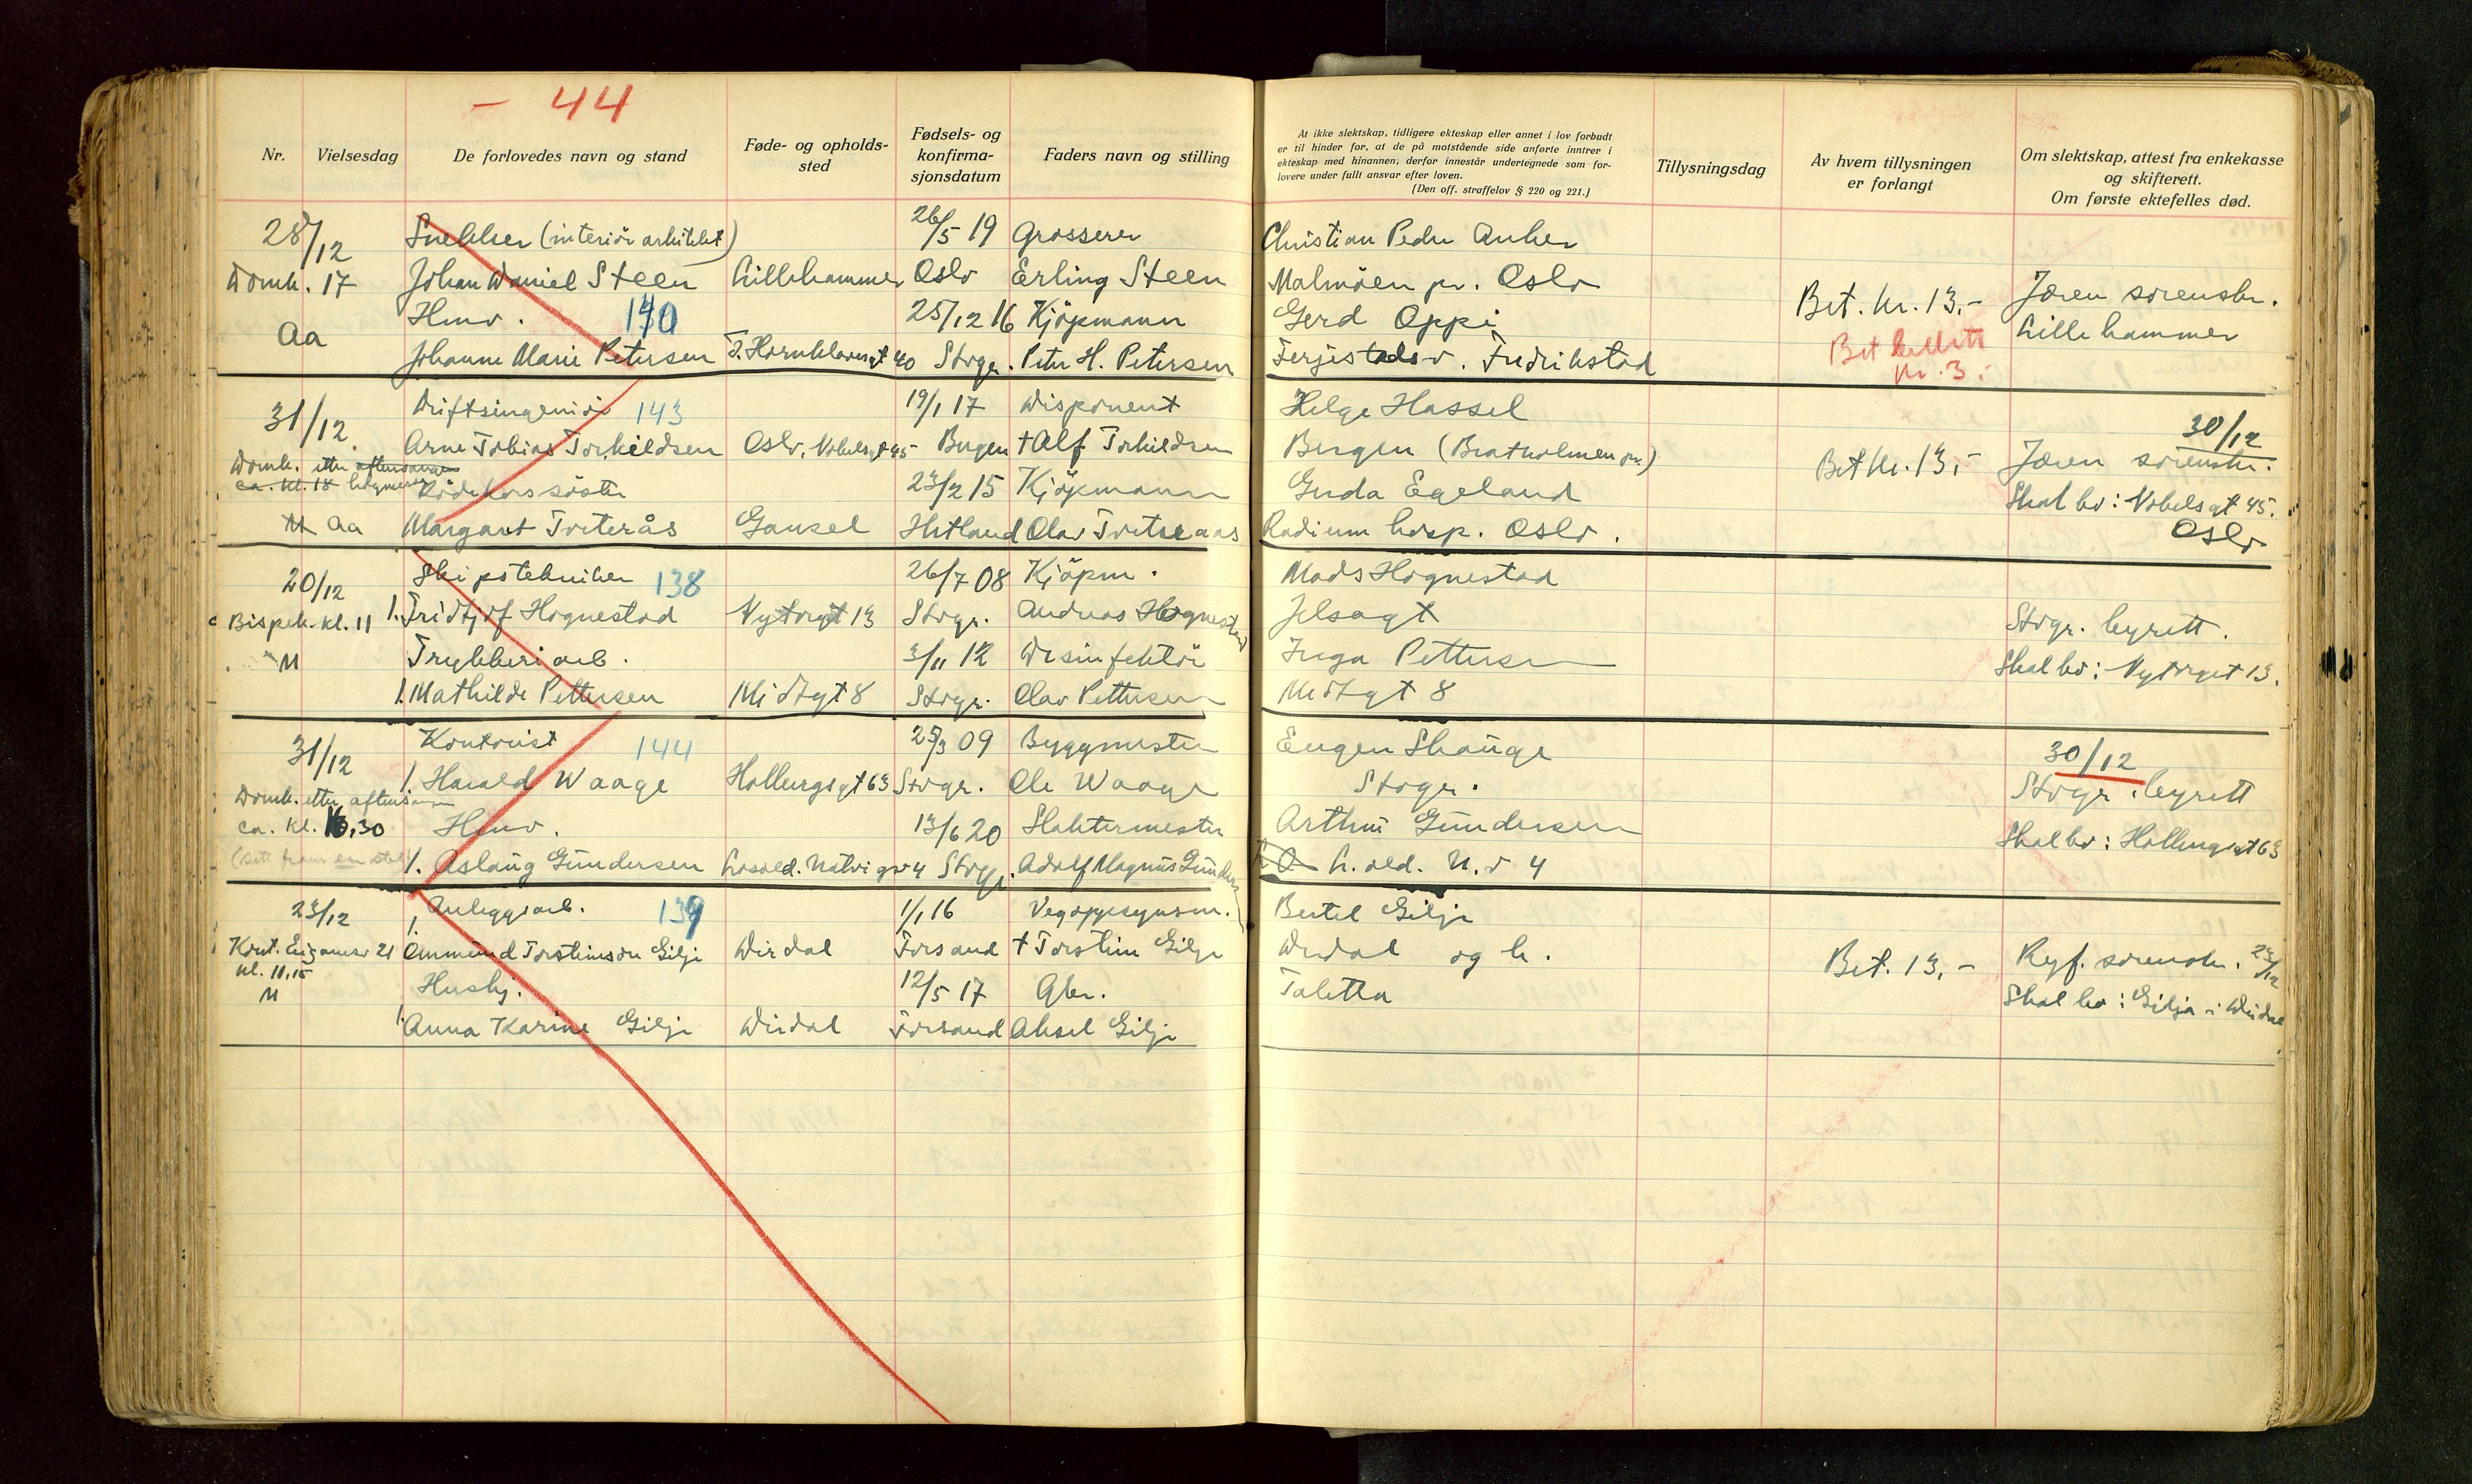 - 44
Nr. Vielsesdag De forlovedes navn og stand Føde- og opholds-sted Fødsels- og konfirma-sjonsdatum Faders navn og stilling
At ikke slektskap, tidligere ekteskap eller annet i lov forbudt
er til hinder for, at de på motstående side anførte inntrer i
ekteskap med hinannen, derfor innestår undertegnede som for-
lovere under fullt ansvar efter loven.
(Den off. straffelov § 220 og 221.)
Tillysningsdag Av hvem tillysningen er forlangt
Om slektskap, attest fra enkekasse
og skifterett.
Om første ektefelles død.
28/12 Snekker (interiør arkitekt) 26/5 19 Grosserer Christian Peder Anker
Domk. 17 Johan Daniel Steen Lillehammer Oslo Erling Steen Malmöen pr. Oslo Bet. kr. 13.- Jæren sorenskr.
Aa Husv. 140 25/12 16 Kjöpmann Gerd Oppi Lillehammer
Johanne Marie Petersen T. Hornklovesgt 40 Stvgr. Peter H. Petersen Ferjestedsv. Fredrikstad Bet kr. 3.-
31/12. Driftsingeniör 143 19/1 17 Disponent Helge Hassel 30/12
Arne Tobias Torkildsen Oslo, Nobelsgt 45 Bergen + Alf Torkildsen Bergen (Bratholmen pr.) Bet kr. 13,- Jæren sorenskr.
Domk. etter aftensangen
ca. kl. 18 Rödekorssöster 23/2 15 Kjöpmann Gerda Egeland Skal bo: Nobelsgt 45.
M Aa Margaret Tveterås Gausel Hetland Olav Tveteraas Radium hosp. Oslo. Oslo
20/12 Skipstekniker 138 26/7 08 Kjöpm. Mads Hognestad
Bispek. kl. 11 1. Fridtjof Hognestad Nytorgt 13 Stvgr. Andreas Hognestad Jelsagt Stvgr. byrett.
M Trykkeriarb. 3/11 12 Desinfektör Inga Pettersen Skal bo: Nytorget 13.
1. Mathilde Pettersen Midtgt 8 Stvgr. Olav Pettersen Midtgt 8
31/12 Kontorist 144 25/3 09 Byggmester Eugen Skauge 30/12
1. Harald Waage Holbergsgt 63 Stvgr. Ole Waage Stvgr. Stvgr. byrett
Domk. etter aftensangen
ca. kl. 16,30 Husv. 13/6 20 Slaktermester Arthur Gundersen Skal bo: Holbergsgt 63
1. Aslaug Gundersen Losold. Natvigsv 4 Stvgr. Adolf Magnus Gundersen L. old. N. v 4
23/12 1. Anleggsarb. 139 1/1 16 Vegoppsynsm. Bertel Gilje
Kont. Eiganesv 21 Ommund Torsteinson Gilje Dirdal Forsand + Torstein Gilje Dirdal og h. Bet. 13,- Ryf. sorenskr. 23/12
kl. 11,15 Hushj. 12/5 17 Gbr. Taletta Skal bo: Gilja i Dirdal
M
1. Anna Karine Gilje Dirdal Forsand Aksel Gilje